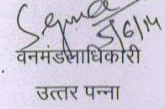 5/6/14
वनमंडलाधिकारी
उत्तर पन्ना